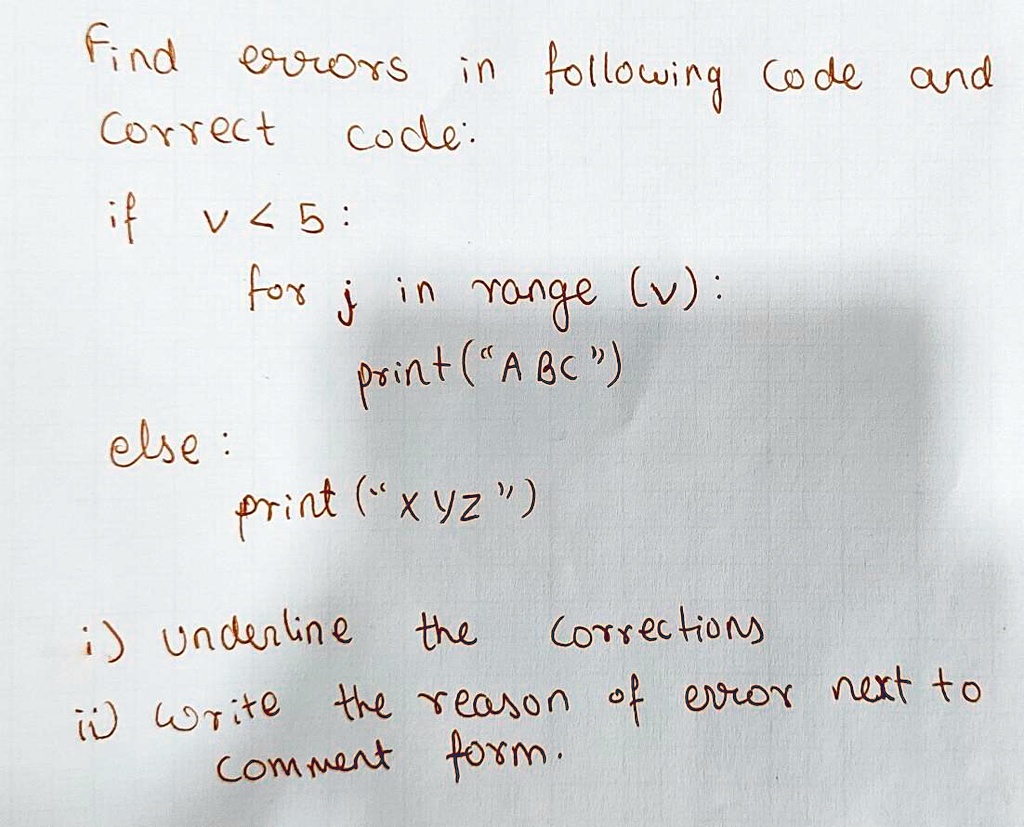 Find errors in following code and
Correct code:
if v < 5:
for j in range (v):
print("ABC")
else:
print("XYZ")
i) underline the corrections
ii) write the reason of error next to
comment form.